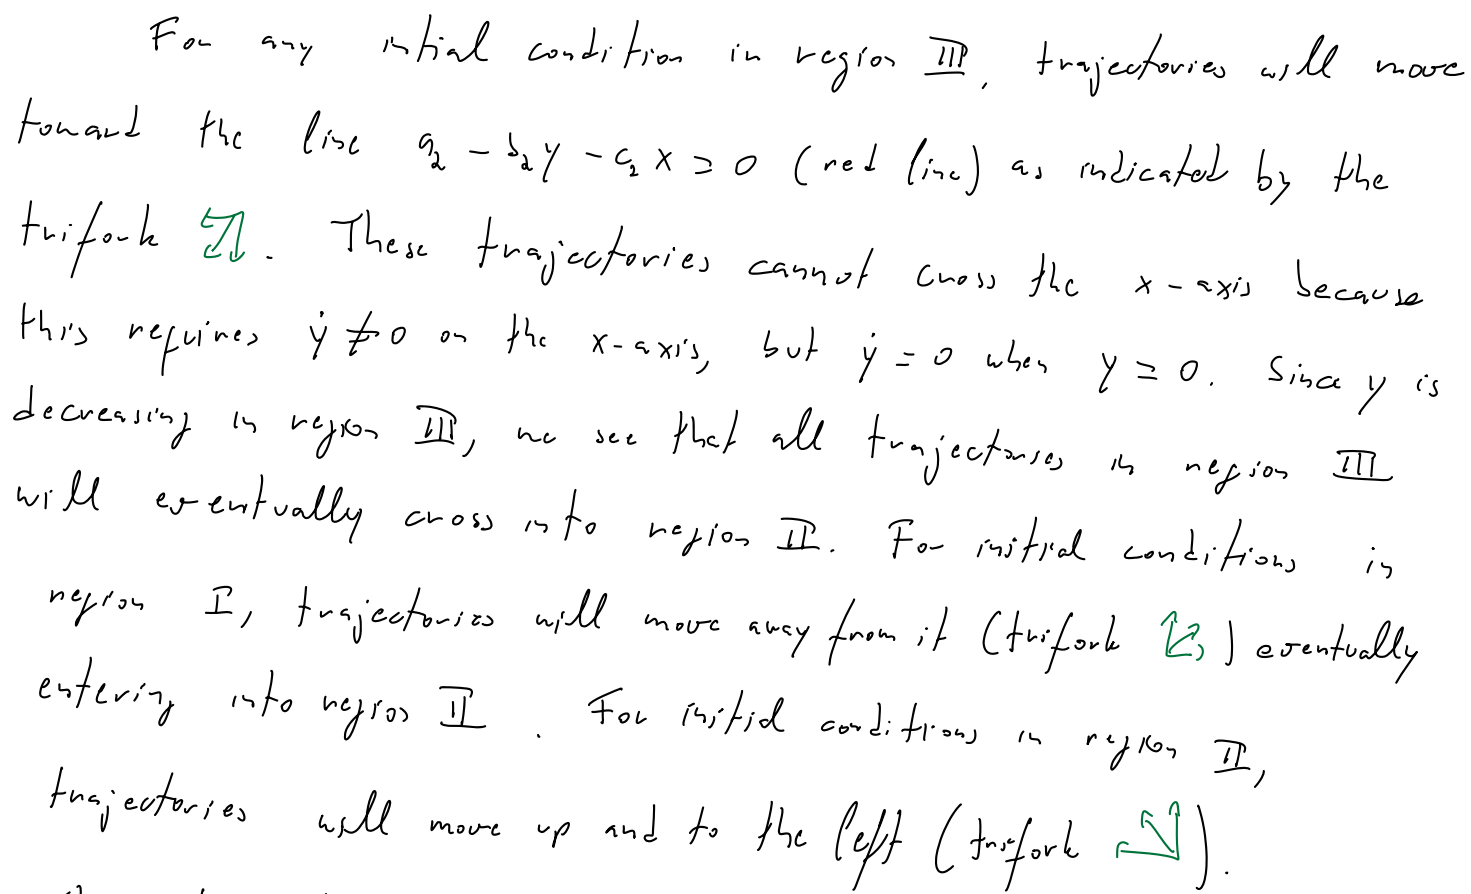 For any intial condition in region III, trajectories will move
toward the line a₂ - b₂y - c₂x = 0 (red line) as indicated by the
trifork. These trajectories cannot cross the x-axis because
this requires ẏ ≠ 0 on the x-axis, but ẏ = 0 when y = 0. Since y is
decreasing in region III, we see that all trajectories in region III
will eventually cross into region II. For initial conditions in
region I, trajectories will move away from it (trifork ) eventually
entering into region II. For initial conditions in region II,
trajectories will move up and to the left (trifork ).